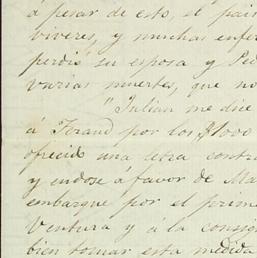 á pesar de esto, el pais
viveres, y muchas enfer
perdió su esposa y Ped
varias muertes, que no
"Julian me dice
á Ferand por los $1000
ofreció una letra contr
y endose á favor de Ma
embarque por el prime
Ventura y á la consig
bien tomar esta medida